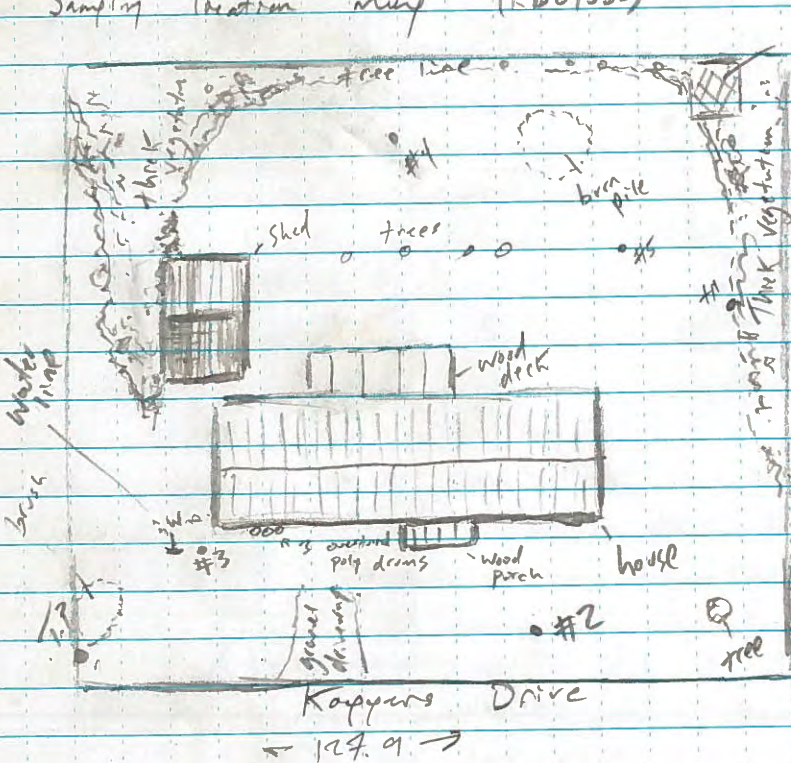 Sampling Location Map
tree line
thick
vegetation
#4
burn
pile
shed
trees
#5
thick vegetation
wood
deck
water
pump
brush
#3
3 overturned
poly drums
wood
porch
house
gravel
driveway
#2
tree
Koppers Drive
← 127.9 →